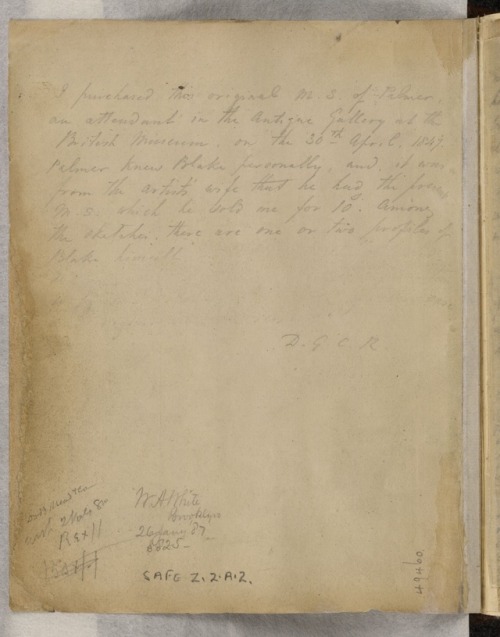 I purchased this original M.S. of Palmer,
an attendant in the Antique Gallery at the
British Museum, on the 30th April, 1847.
Palmer knew Blake personally, and it was
from the artist's wife that he had the present
M.S. which he sold me for 10s. Among
the sketches there are one or two profiles of
Blake himself
D. G. C. R
W.A. White
Brooklyn
26 Jany 87
SAFE Z.2.A.2.
49460